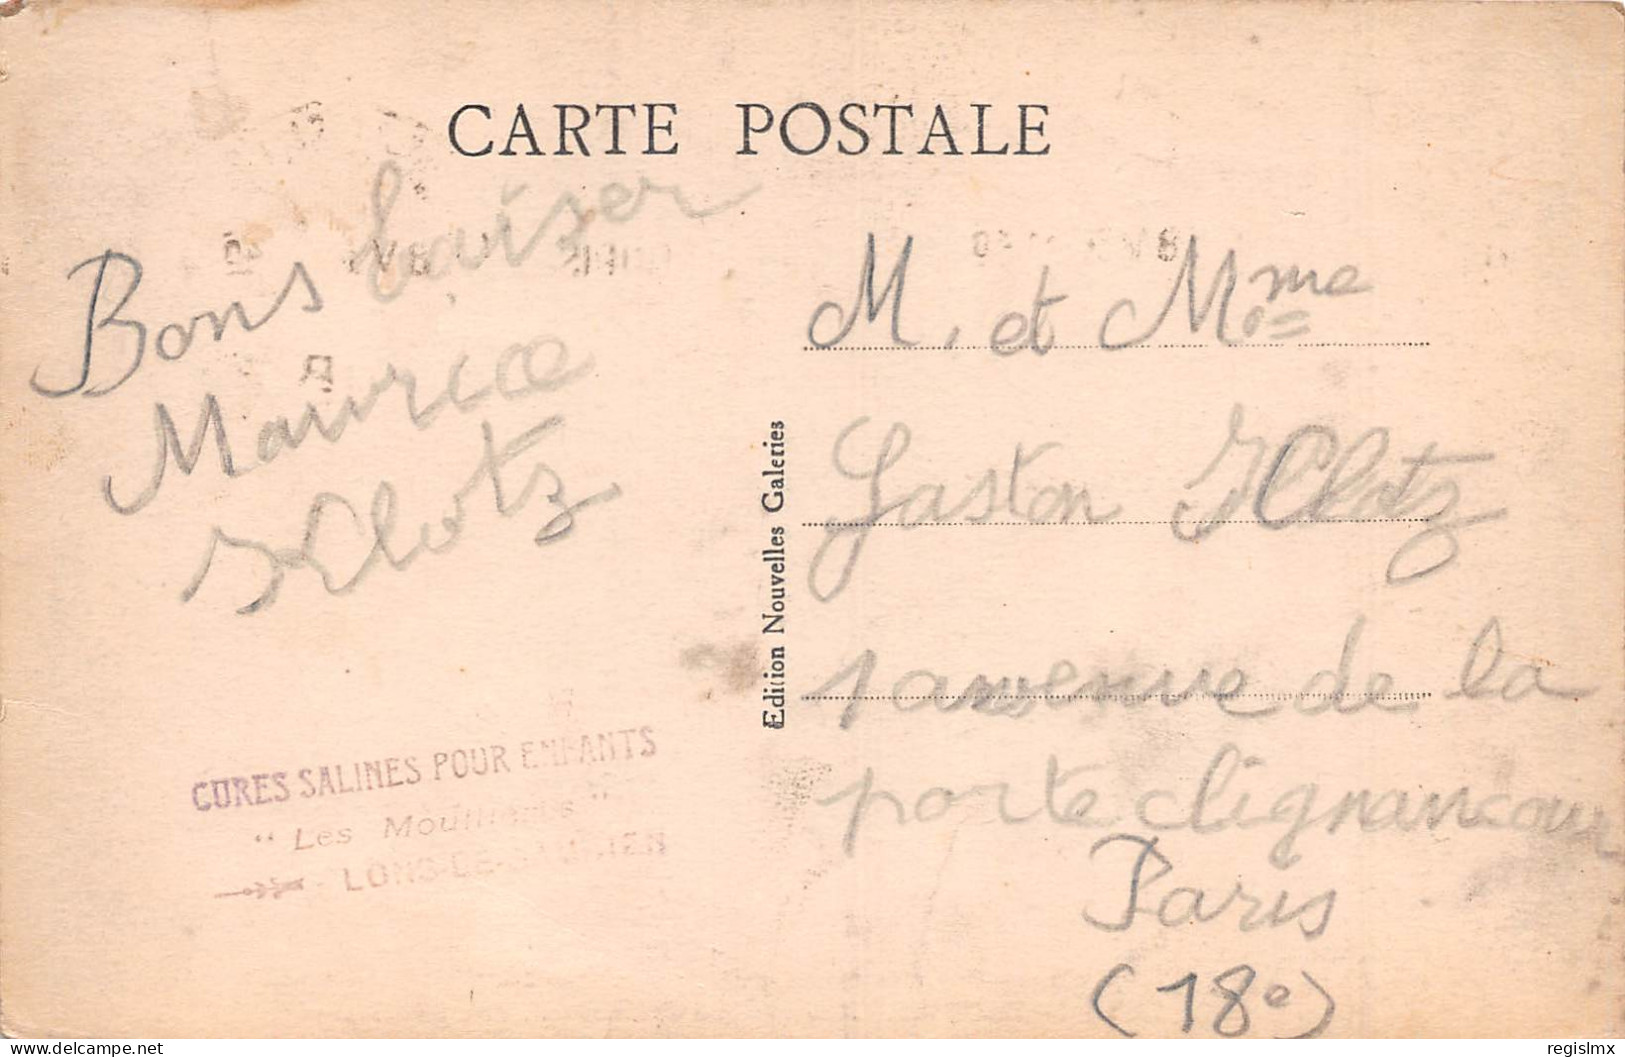 CARTE POSTALE
Bons baiser
Maurice
Klotz
CURES SALINES POUR ENFANTS
" Les Mouillères "
LONS-LE-SAUNIER
Edition Nouvelles Galeries
M. et Mme
Gaston Klotz
1 avenue de la
porte clignancour
Paris
(18e)
www.delcampe.net
regislmx